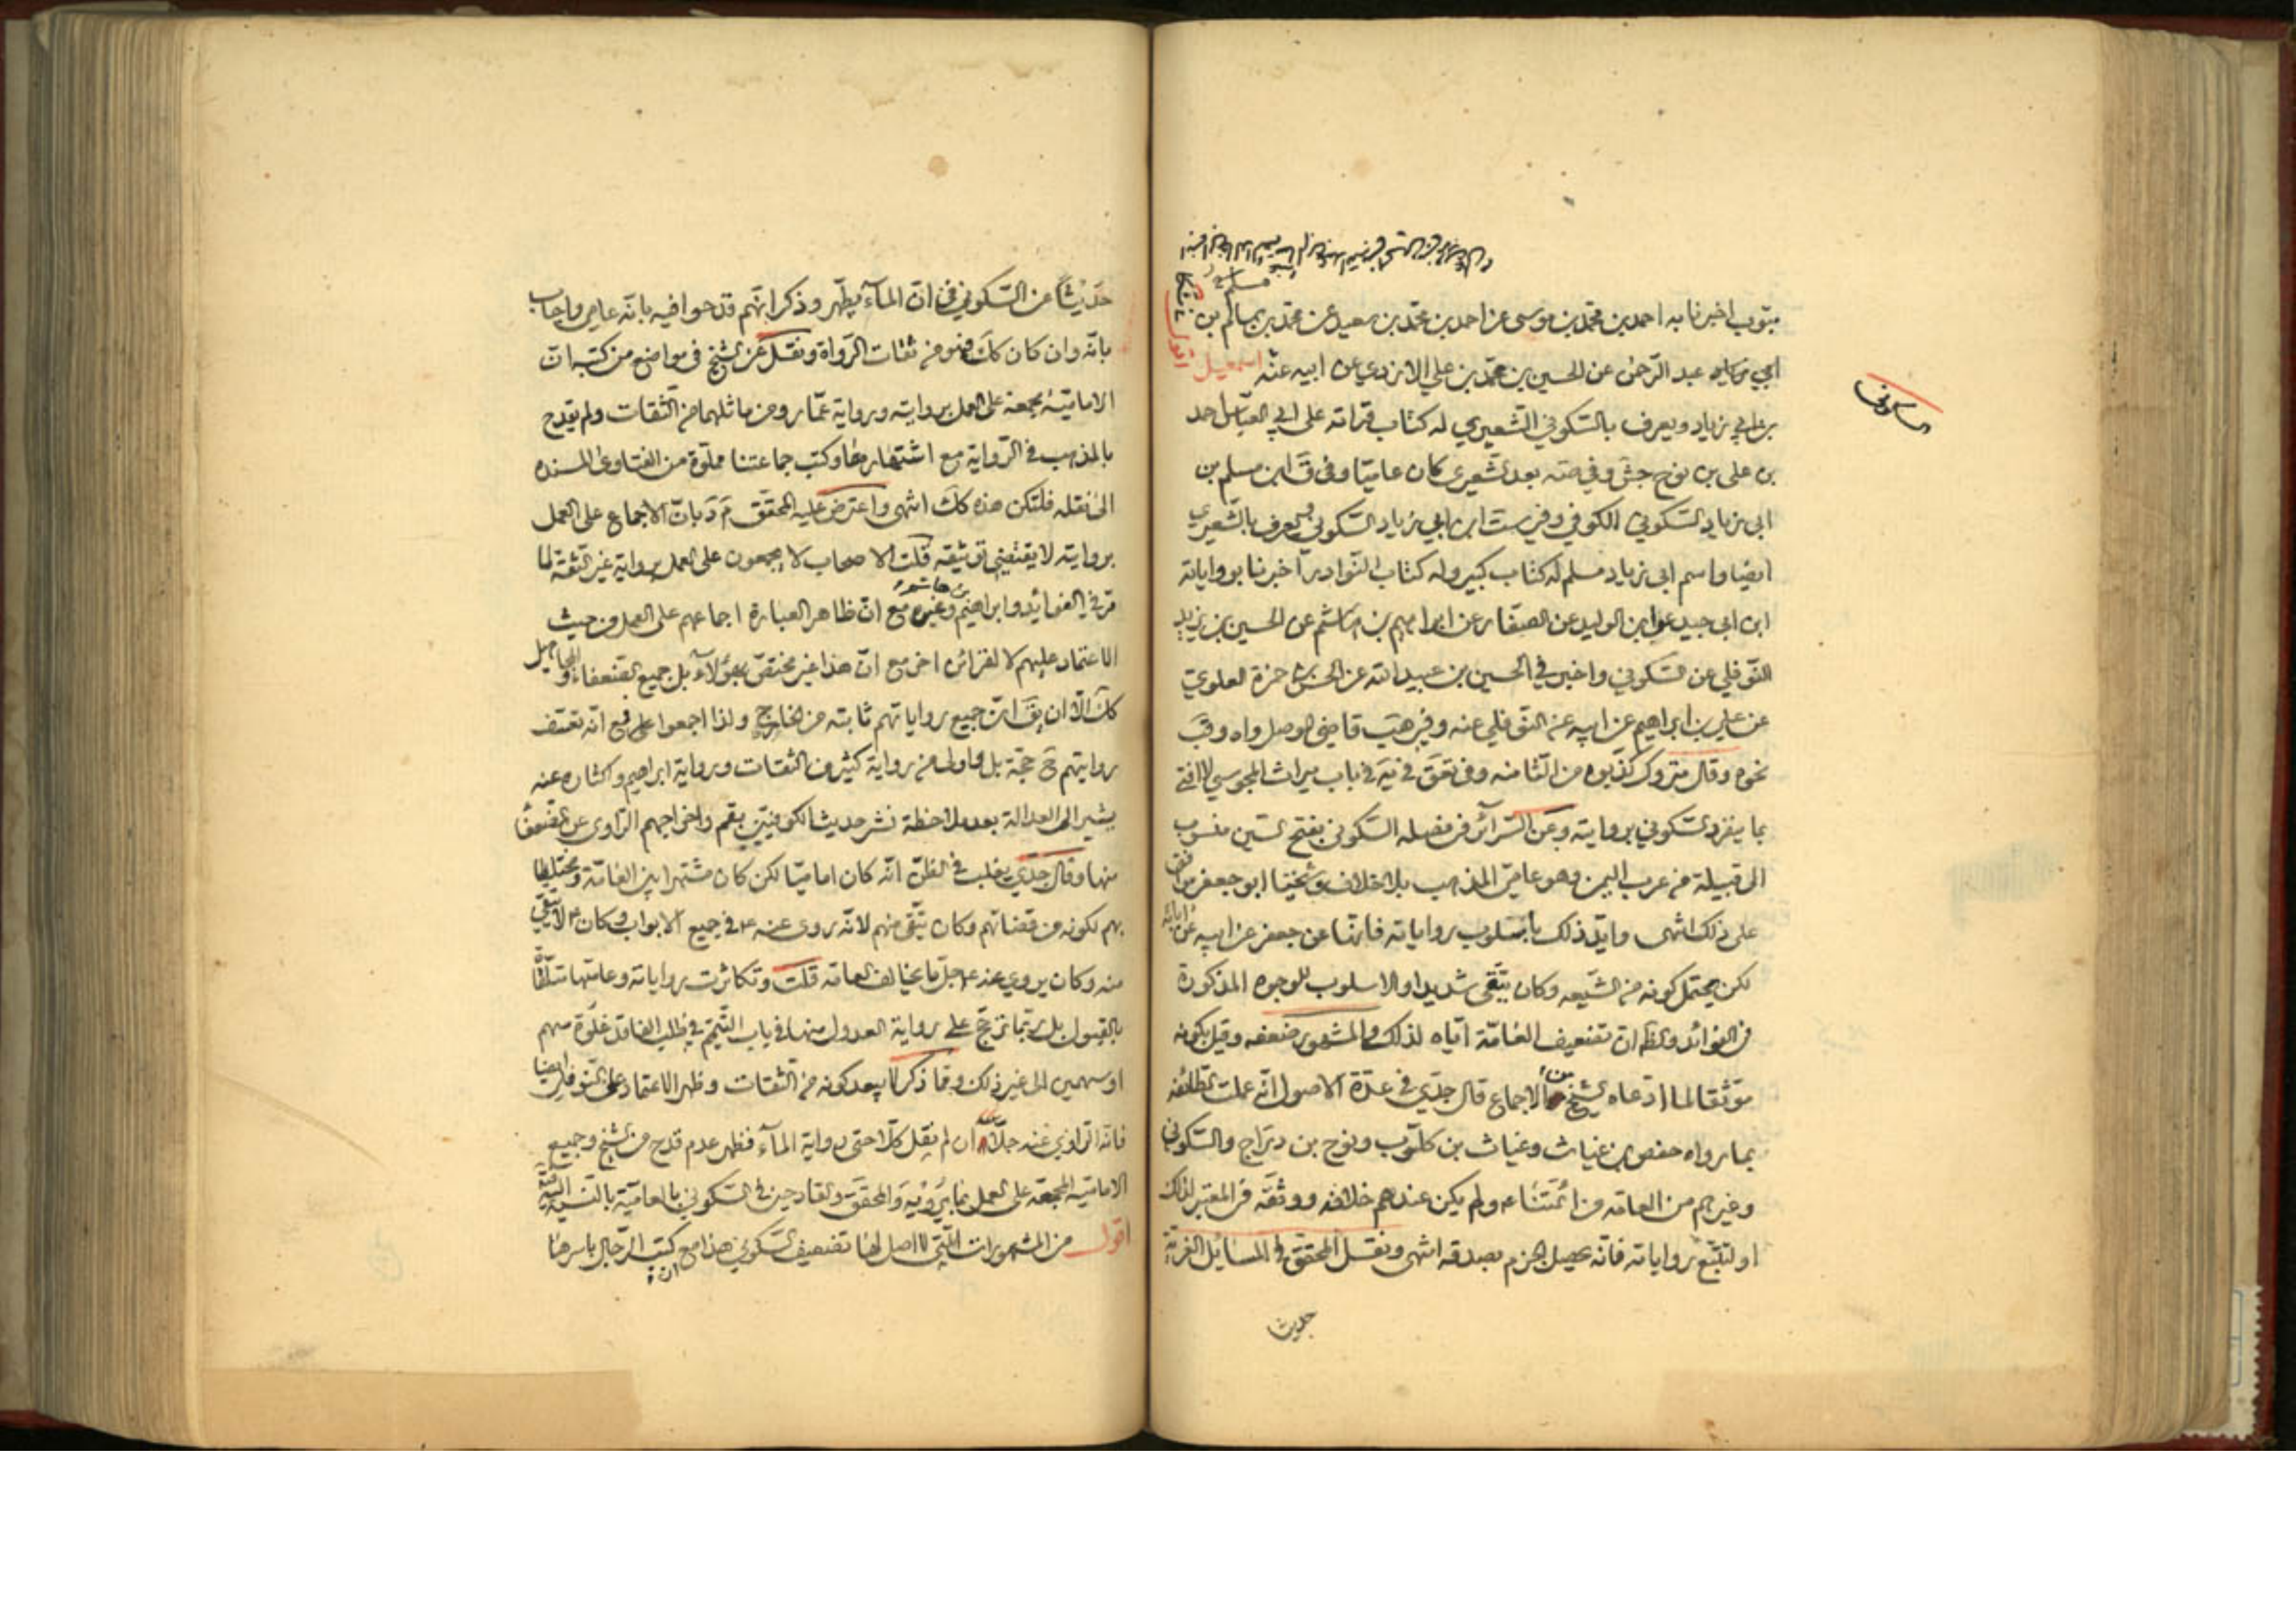 مبوب اخبرنا به احمد بن محمد بن موسى عن احمد بن محمد بن سعيد عن محمد بن سالم بن
عبد الرحمن عن الحسين بن محمد بن علي الازدي عن ابيه عنه اسمعيل
بن ابي زياد ويعرف بالسكوني الشعيري له كتاب قراته على ابي العباس احمد
بن علي بن نوح جش وفي صه بعد الشعيري كان عاميا وفي ق ابن مسلم بن
ابي زياد السكوني الكوفي وفي ست ابن ابي زياد السكوني ويعرف بالشعيري
ايضا واسم ابي زياد مسلم له كتاب كبير وله كتاب النوادر اخبرنا برواياته
ابن ابي جيد عن ابن الوليد عن الصفار عن ابراهيم بن هاشم عن الحسين بن يزيد
النوفلي عن السكوني واخبرني الحسين بن عبيد الله عن الحسن بن حمزة العلوي
عن علي بن ابراهيم عن ابيه عن النوفلي عنه وفي هب قاضي الموصل واه وقب
نحوه وقال متروك كذبوه من الثامنة وفي تعق في يه في باب ميراث المجوسي لا افتي
بما ينفرد السكوني بروايته وعن السرائر في فصله السكوني بفتح السين منسوب
الى قبيلة من عرب اليمن وهو عامي المذهب بلا خلاف وشيخنا ابو جعفر موافق
على ذلك انتهى وايد ذلك باسلوب رواياته فانها عن جعفر عن ابيه عن ابائه
لكن يحتمل كونه من الشيعه وكان يتقي شديدا والاسلوب للوجوه المذكورة
في الفوائد والظ ان تضعيف العامة اياه لذلك والمشهور ضعفه وقيل بكونه
موثقا لما ادعاه الشيخ من الاجماع قال جدي في عدة الاصول انه عملت الطائفه
بما رواه حفص بن غياث وغياث بن كلوب ونوح بن دراج والسكوني
وغيرهم من العامه عن ائمتنا ع ولم يكن عندهم خلافه ووثقه في المعتبر لذلك
او لتتبع رواياته فانه يحصل الجزم بصدقه انتهى ونقل المحقق في المسايل الغرية
حديثا
حديثا عن السكوني في ان الماء يطهر وذكر انهم قدحوا فيه بانه عامي واجاب
بانه وان كان كك فهو من ثقات الرواة ونقل عن الشيخ في مواضع من كتبه ان
الامامية مجمعة على العمل بروايته ورواية عمار ومن ماثلهما من الثقات ولم يقدح
بالمذهب في الرواية مع اشتهارها وكتب جماعتنا مملوة من الفتاوى المسنده
الى نقله فلتكن هذه كك انتهى واعترض عليه المحقق م د بان الاجماع على العمل
بروايته لا يقتضي توثيقه قلت الاصحاب لا يجمعون على العمل برواية غير الثقة لما
مر في الفوائد وابراهيم بن هاشم وغيره مع ان ظاهر العبارة اجماعهم على العمل من حيث
الاعتماد عليهم لا لقرائن اخر مع ان هذا غير مختص بهؤلاء بل جميع الضعفاء والمجاهيل
كك الا ان يق ان جميع رواياتهم ثابته من الخارج ولذا اجمعوا على
روايتهم ح حجة بل واولى من رواية كثير من الثقات ورواية ابراهيم واكثاره عنه
يشير الى العدالة بعد ملاحظة نشر حديث الكوفيين بقم واخراجهم الراوي عن الضعفا
منها وقال جدي يغلب في الظن انه كان اماميا لكن كان مشتهرا بين العامة ومختلطا
بهم لكونه من قضاتهم وكان يتقي منهم لانه روى عنه ع في جميع الابواب وكان ع لا يتقي
منه وكان يروي عنه ع جل ما يخالف العامه قلت وتكاثرت رواياته وعامتها متلقاة
بالقبول بل ربما ترجح على رواية العدول منها في باب التيمم في طلب الفاقد غلوة سهم
او سهمين الى غير ذلك وما ذكر لا يبعد كونه من الثقات وظهر الاعتماد على النوفلي ايضا
فانه الراوي عنه جلا ان لم نقل كلا حتى رواية الماء فظهر عدم قدح من الشيخ وجميع
الامامية المجمعة على العمل بما يرويه والمحقق والقادحين في السكوني بالعامية بالنسبة اليه
اقول من المشهورات التي لا اصل لها تضعيف السكوني هذا مع ان كتب الرجال باسرها